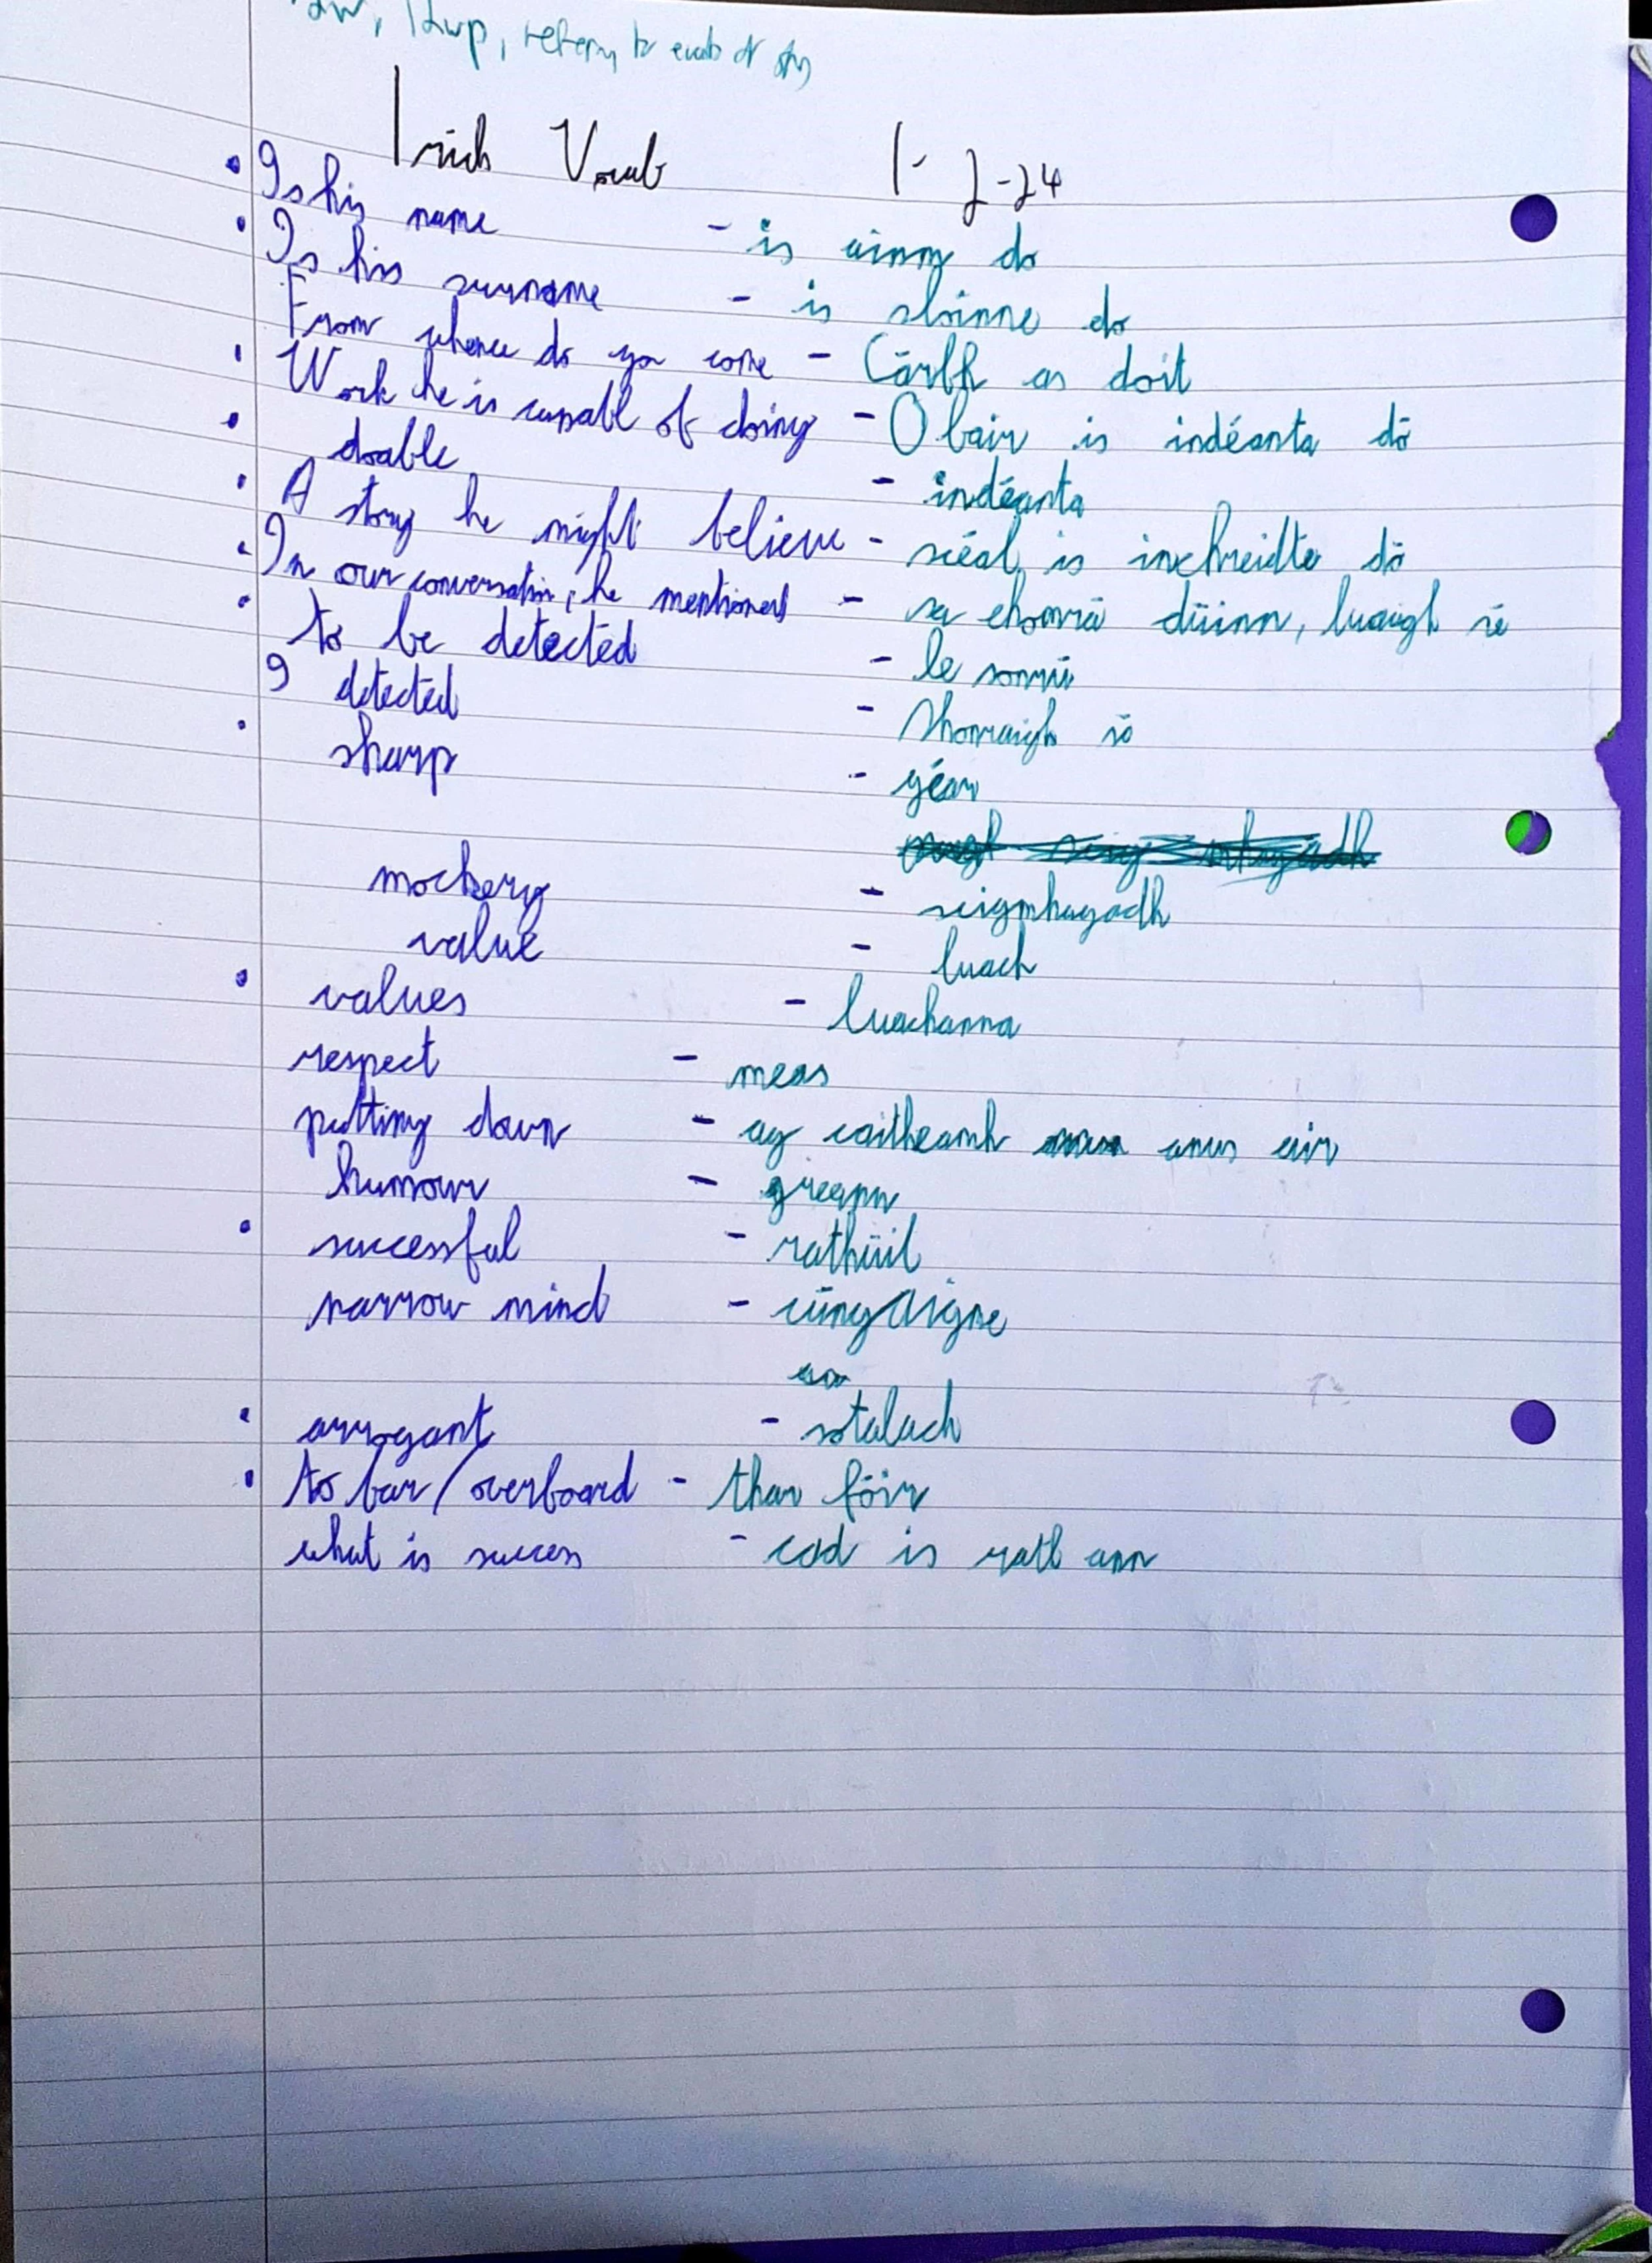 , refery to ends of
Irish Vocab 1-2-24
• Is his name - is ainm do
• Is his surname - is sloinne do
From whence do you come - Cárbh as doit
• Work he is capabl of doing - Obair is indéanta dó
• doable - indéanta
• A story he might believe - scéal is inchreidte dó
• In our conversation, he mentioned - sa chomrá dúinn, luaigh sé
• to be detected - le sonrú
I detected - Shonraigh sé
• sharp - géar
mockery - scigmhagadh
value - luach
• values - luachanna
respect - meas
putting down - ag caitheamh anuas air
humour - greann
• successful - rathúil
narrow mind - cúngAigne
• arrogant - sotalach
• to far/overboard - thar fóir
what is success - cad is rath ann